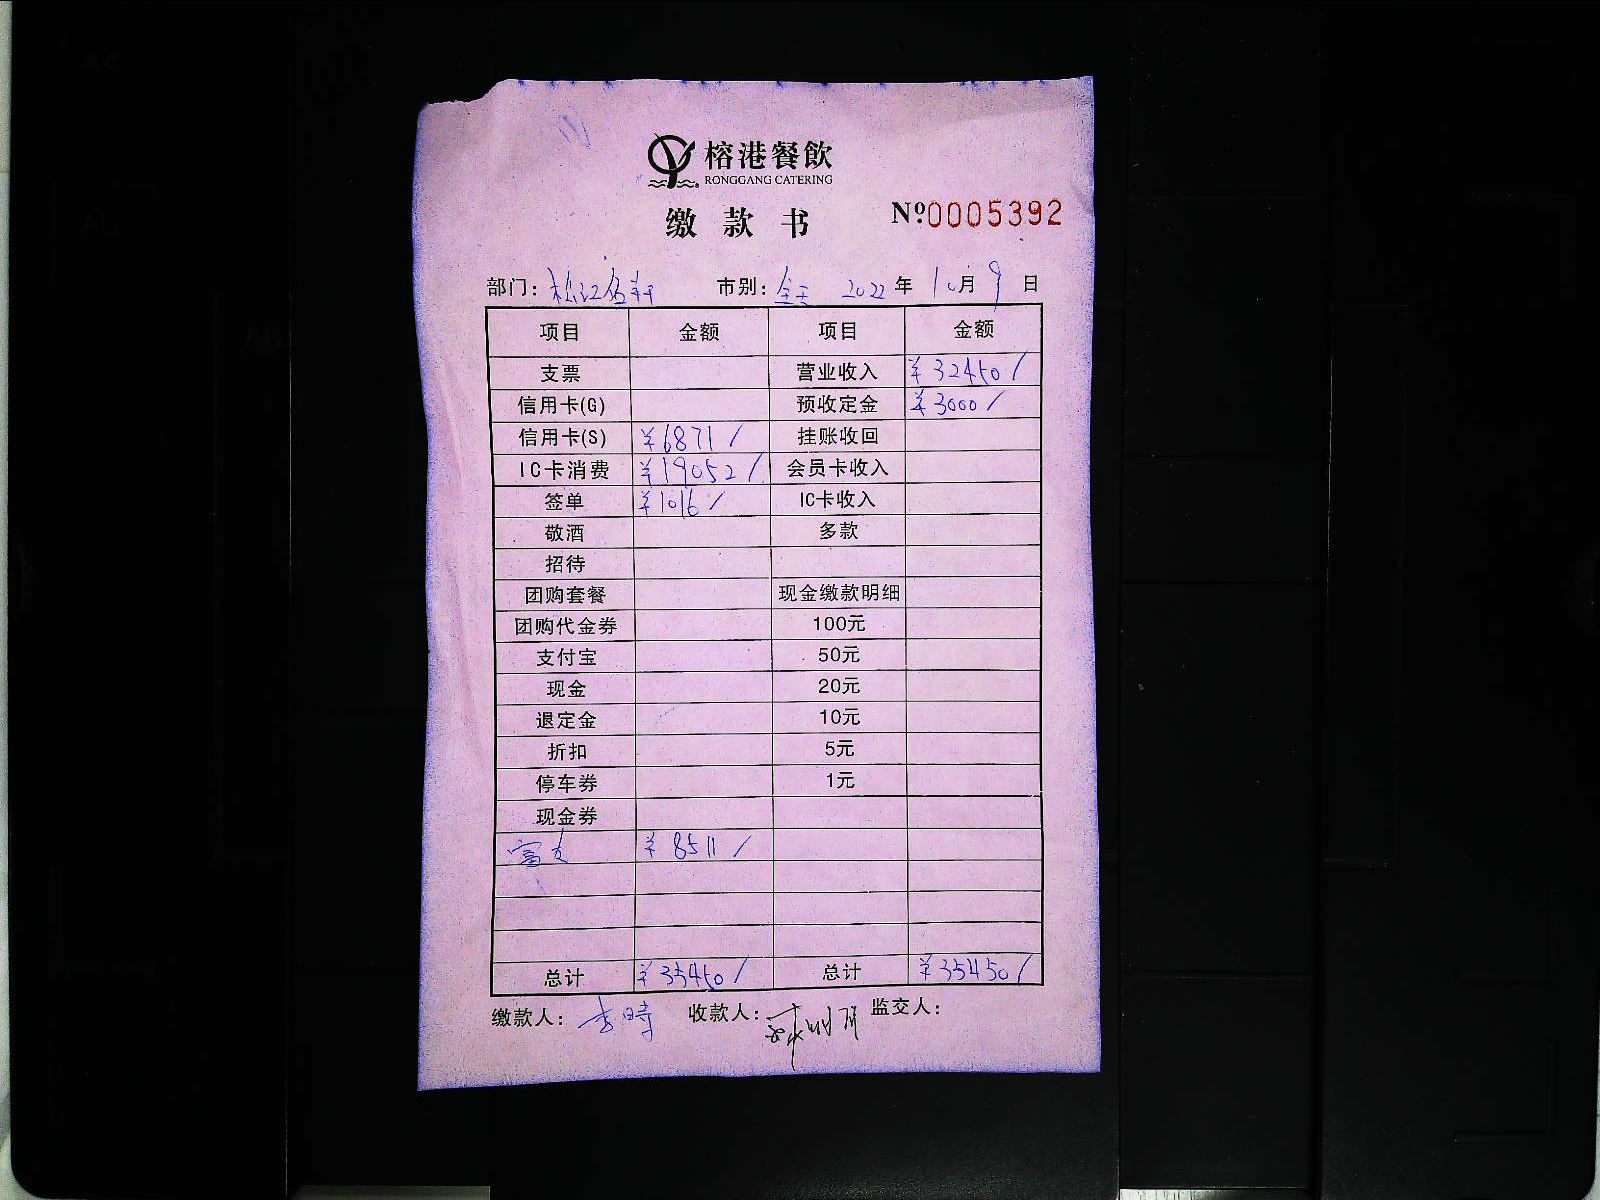 榕港餐飲
RONGGANG CATERING
缴款书 Nº0005392
部门: 松江 市别: 全天 2022年10月9日
项目 金额 项目 金额
支票 营业收入 ¥32450/
信用卡(G) 预收定金 ¥3000/
信用卡(S) ¥6871/ 挂账收回
IC卡消费 ¥19052/ 会员卡收入
签单 ¥1016/ IC卡收入
敬酒 多款
招待
团购套餐 现金缴款明细
团购代金券 100元
支付宝 50元
现金 20元
退定金 10元
折扣 5元
停车券 1元
现金券
富友 ¥8511/
总计 ¥35450/ 总计 ¥35450/
缴款人: 收款人: 监交人: